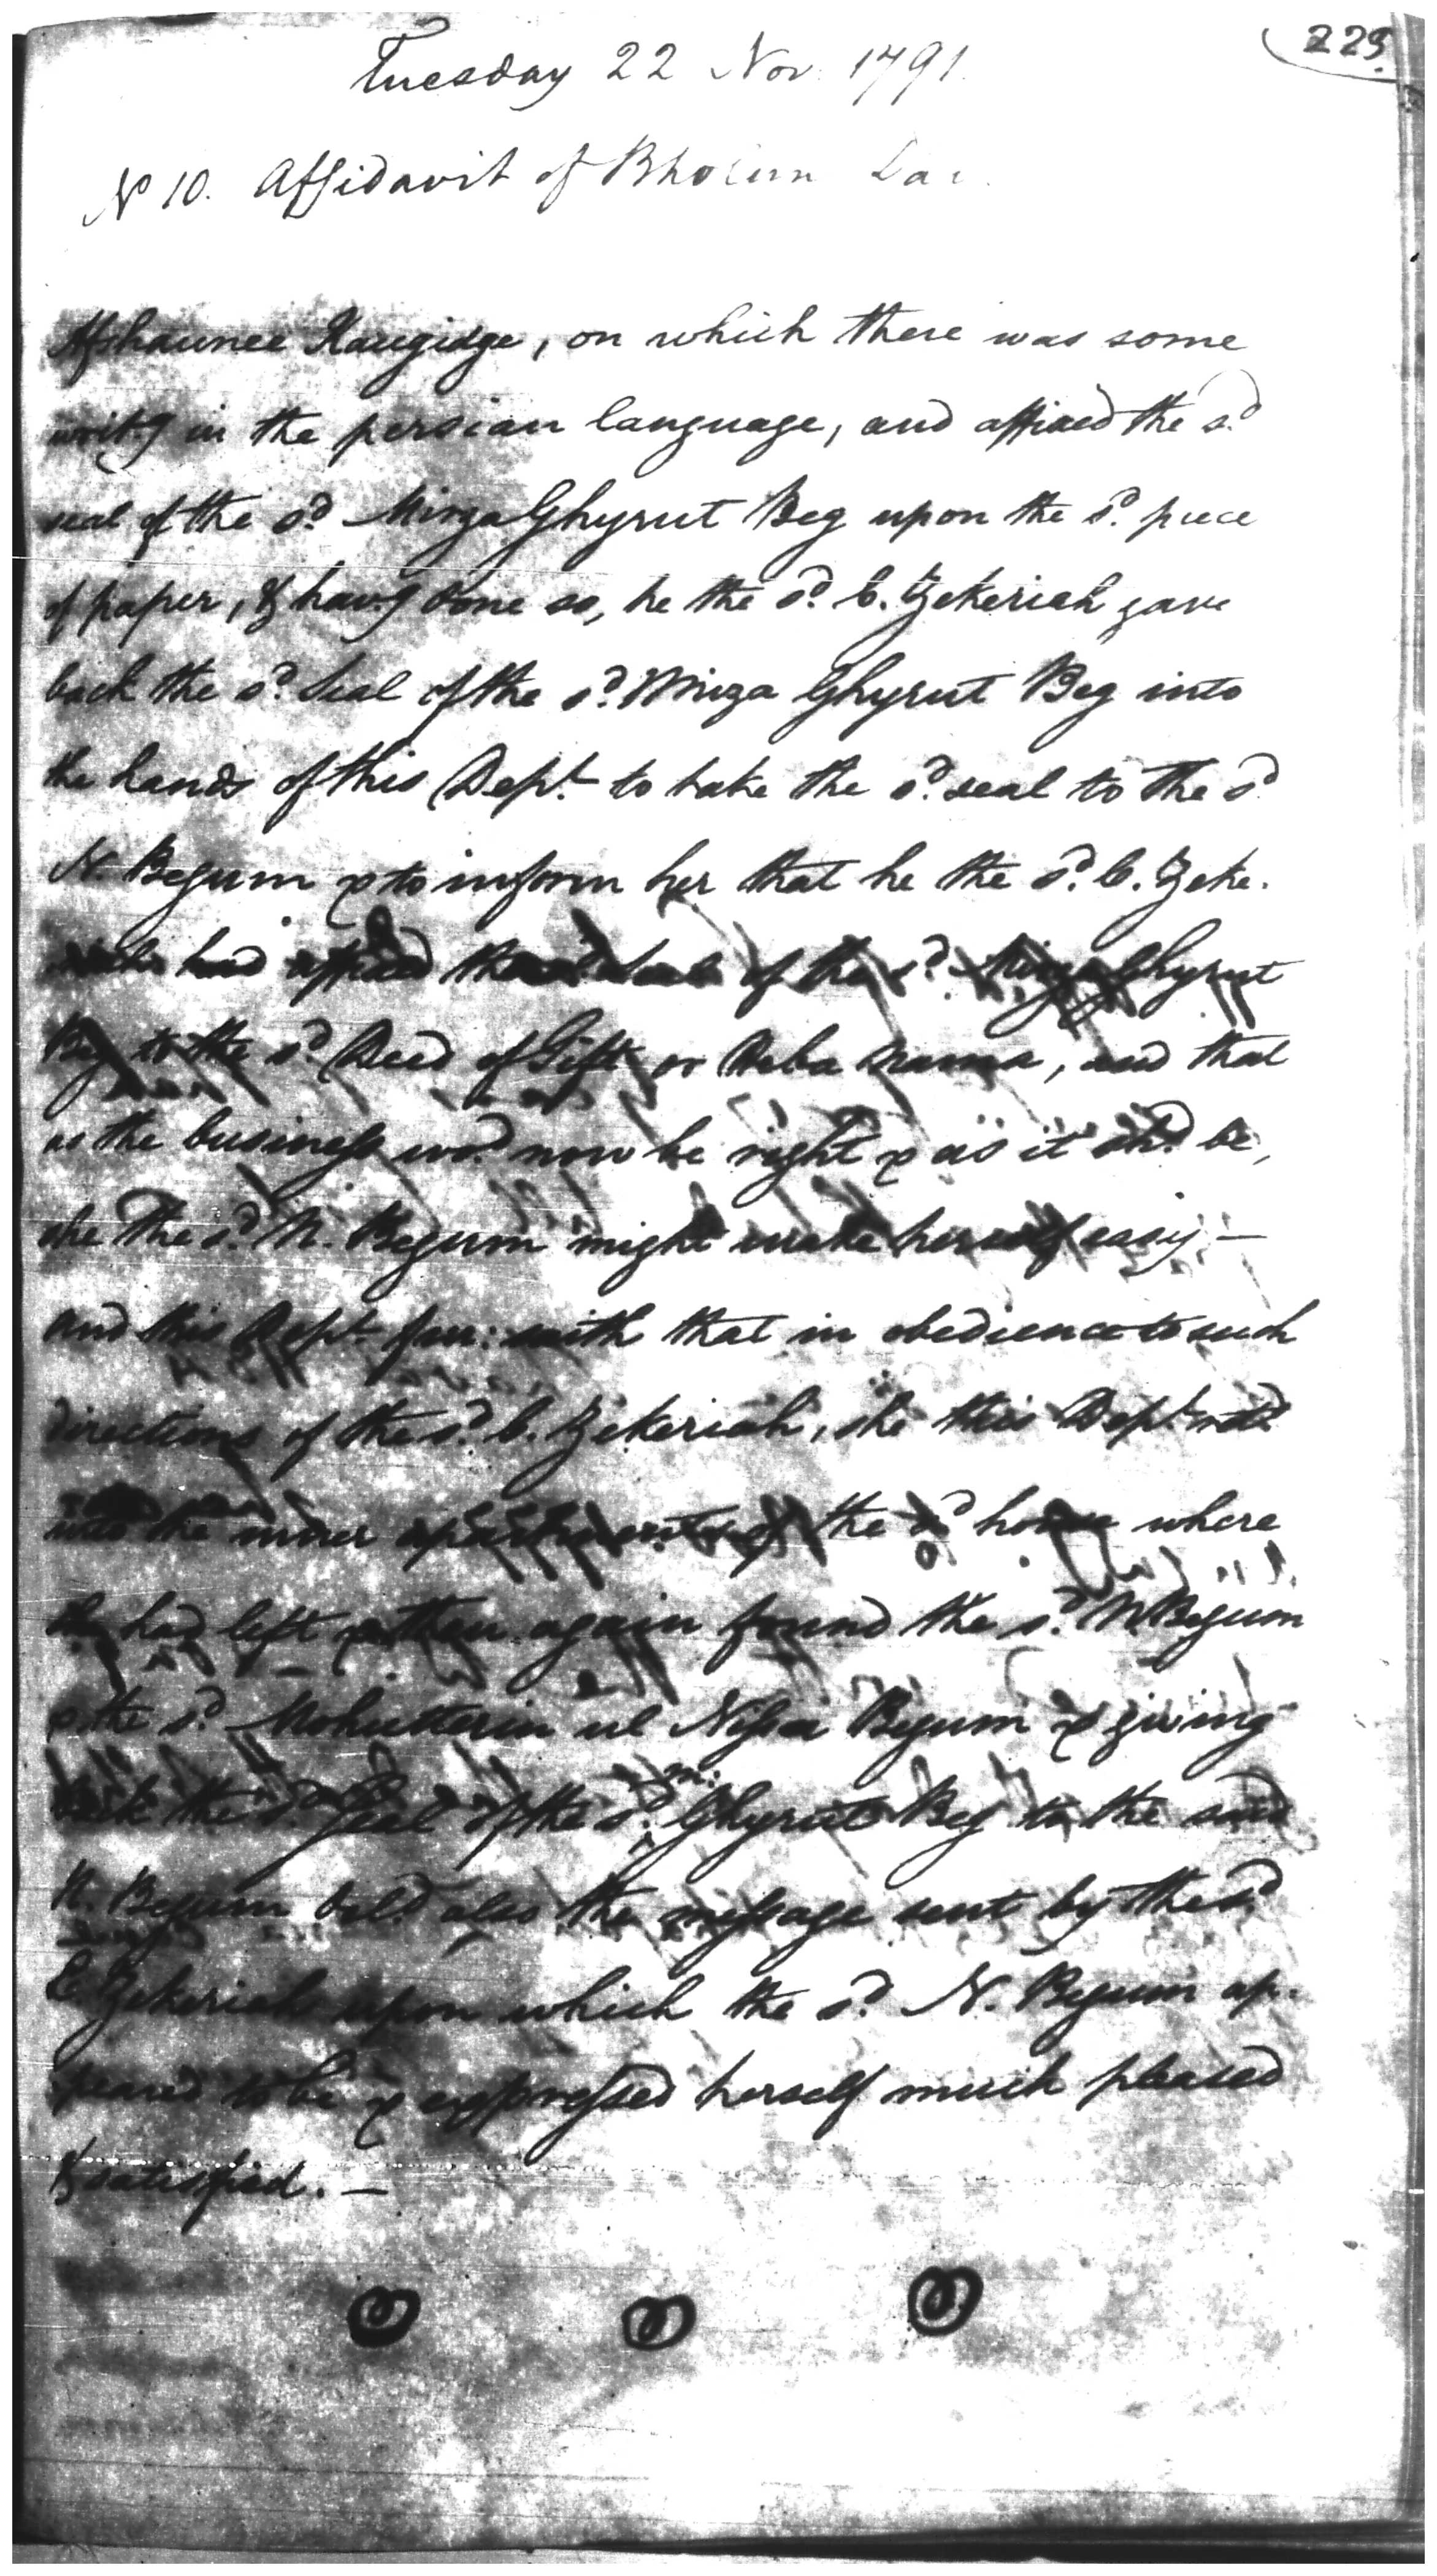 229.
Tuesday 22 Nov. 1791.
No 10. Affidavit of
Afshaunee Kaugidge, on which there was some
writ.g in the persian language, and affixed the sd.
seal of the sd. Mirza Ghyrut Beg upon the sd. piece
of paper, & hav.g done so, he the sd. C. Zekeriah gave
back the sd. Seal of the sd. Mirza Ghyrut Beg into
the hands of this Dept. to take the sd. seal to the sd.
N. Begum & to inform her that he the sd. C. Zeke.
riah had affixed the sd. Seal of the sd. Mirza Ghyrut
Beg to the sd. Deed of Gift or Heba Nama, and that
as the business wod. now be right & as it shd. be,
she the sd. N. Begum might make herself easy. —
and this Dept. fur: saith that in obedience to such
directions of the sd. C. Zekeriah, she this Dept. retd.
into the inner apartments of the sd. house where
she had left & then again found the sd. N Begum
& the sd. ul Nissa Begum & giving
back the sd. Seal of the sd. M: Ghyrut Beg to the said
N. Begum deld. also the message sent by the sd.
C. Zekeriah upon which the sd. N. Begum ap.
peared to be & expressed herself much pleased
& satisfied. —